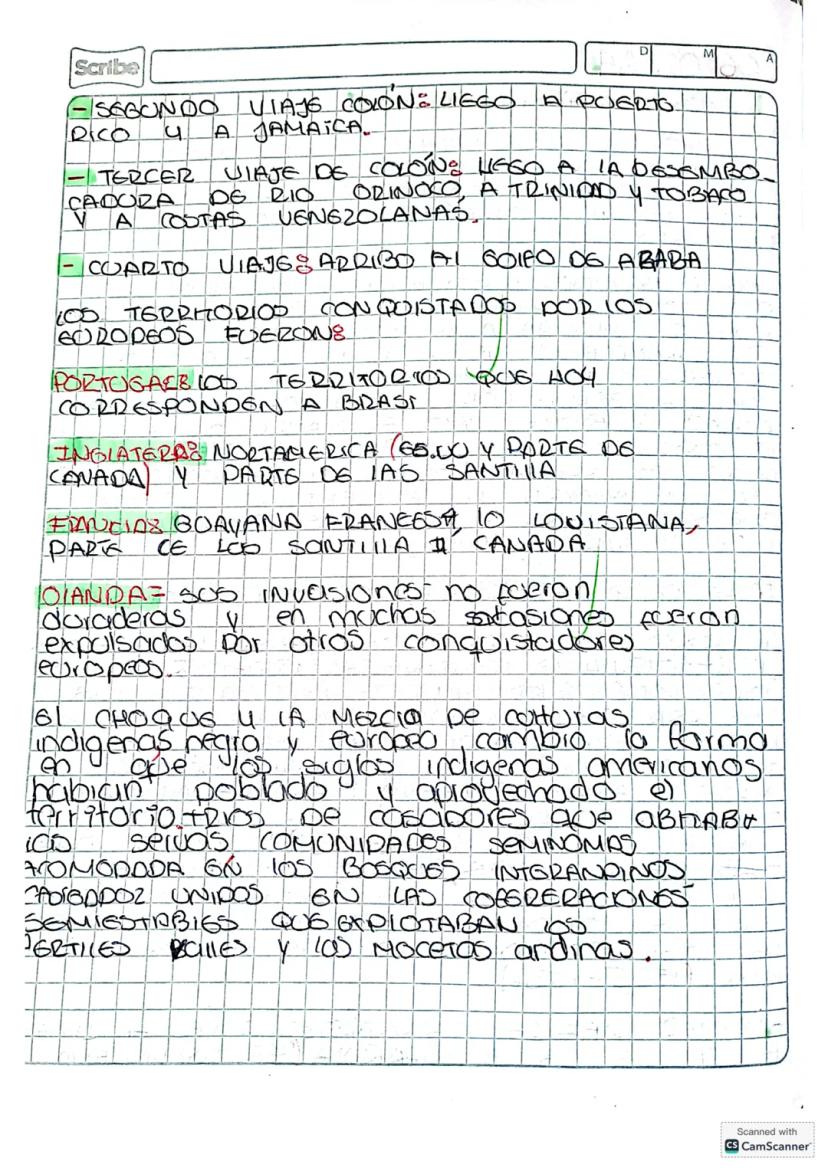 Scribe
D M A
- SEGUNDO VIAJE COLÓN: LLEGO A PUERTO
RICO Y A JAMAICA.
- TERCER VIAJE DE COLÓN: LLEGO A LA DESEMBO-
CADURA DE RIO ORINOCO, A TRINIDAD Y TOBAGO
Y A COSTAS VENEZOLANAS.
- CUARTO VIAJE: ARRIBO AL GOLFO DE ABABA
LOS TERRITORIOS CONQUISTADOS POR LOS
EUROPEOS FUERON:
LOS TERRITORIOS QUE HOY
CORRESPONDEN A BRASI
INGLATERA: NORTAMERICA (EE.UU Y PARTE DE
CANADA) Y PARTE DE LAS SANTILLA
FRANCIA: GUAYANA FRANEESA, LO LOUISTANA,
PARTE CE LOS SANTILLA CANADA
OLANDA= SUS INVASIONES no fueron
duraderas y en muchas fueron
expulsados por otros conquistadores
europeos.
El CHOQUE Y LA MEZCLA DE CULTURAS
indigenas negra y europeo cambio la forma
en que los siglos indigenas americanos
habian poblado y aprovechado el
territorio. DE CASADORES que
LAS SELVAS COMUNIDADES SEMINOMAS
EN LOS BOSQUES INTERANDINOS
UNIDOS EN LAS
SEMIESTABLES QUE EXPLOTABAN LOS
FERTILES VALLES Y LAS MOCETAS andinas.
Scanned with
CS CamScanner